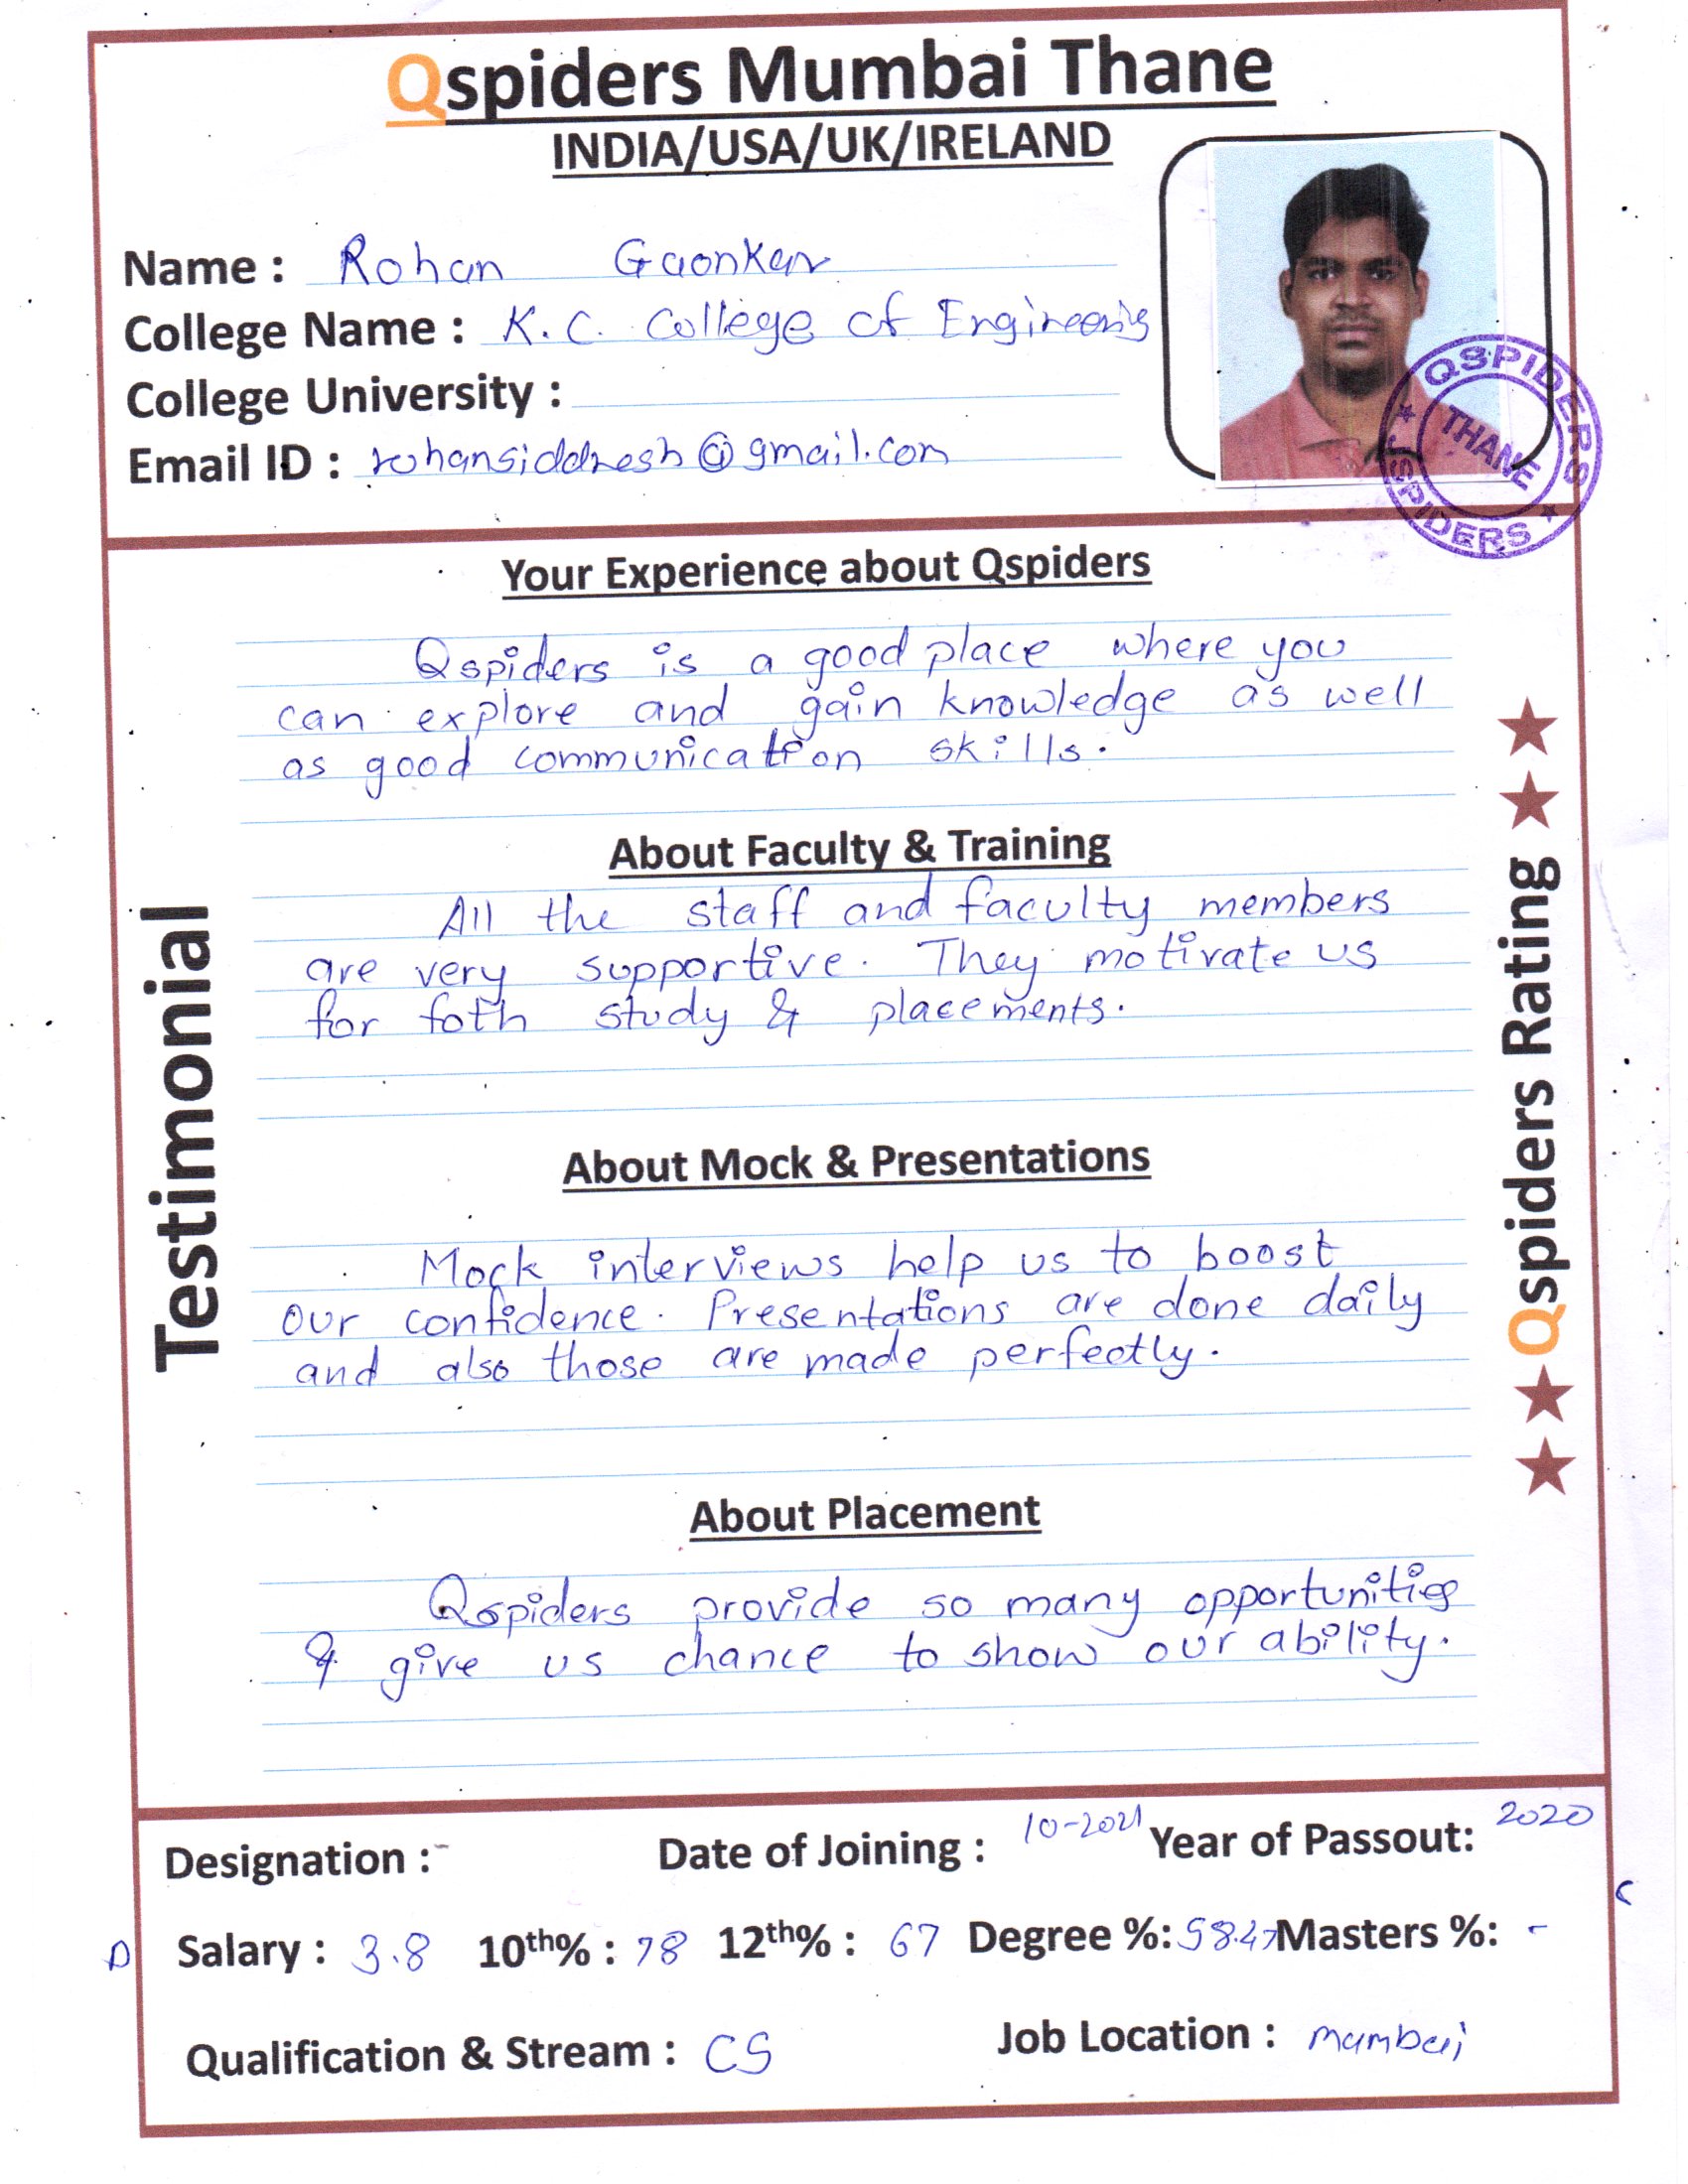 Qspiders Mumbai Thane
INDIA/USA/UK/IRELAND
Name : Rohan Gaonkar
College Name : K.C. College of Engineering
College University :
Email ID : rohansiddhesh@gmail.com
QSPIDERS
THANE
JSPIDERS
Your Experience about Qspiders
Qspiders is a good place where you
can explore and gain knowledge as well
as good communication skills.
About Faculty & Training
All the staff and faculty members
are very supportive. They motivate us
for foth study & placements.
About Mock & Presentations
Mock interviews help us to boost
our confidence. Presentations are done daily
and also those are made perfectly.
About Placement
Qspiders provide so many opportunities
& give us chance to show our ability.
Testimonial
Qspiders Rating
Designation :- Date of Joining : 10-2021 Year of Passout: 2020
Salary : 3.8 10th% : 78 12th% : 67 Degree %: 58.47 Masters %: -
Qualification & Stream : CS Job Location : mumbai